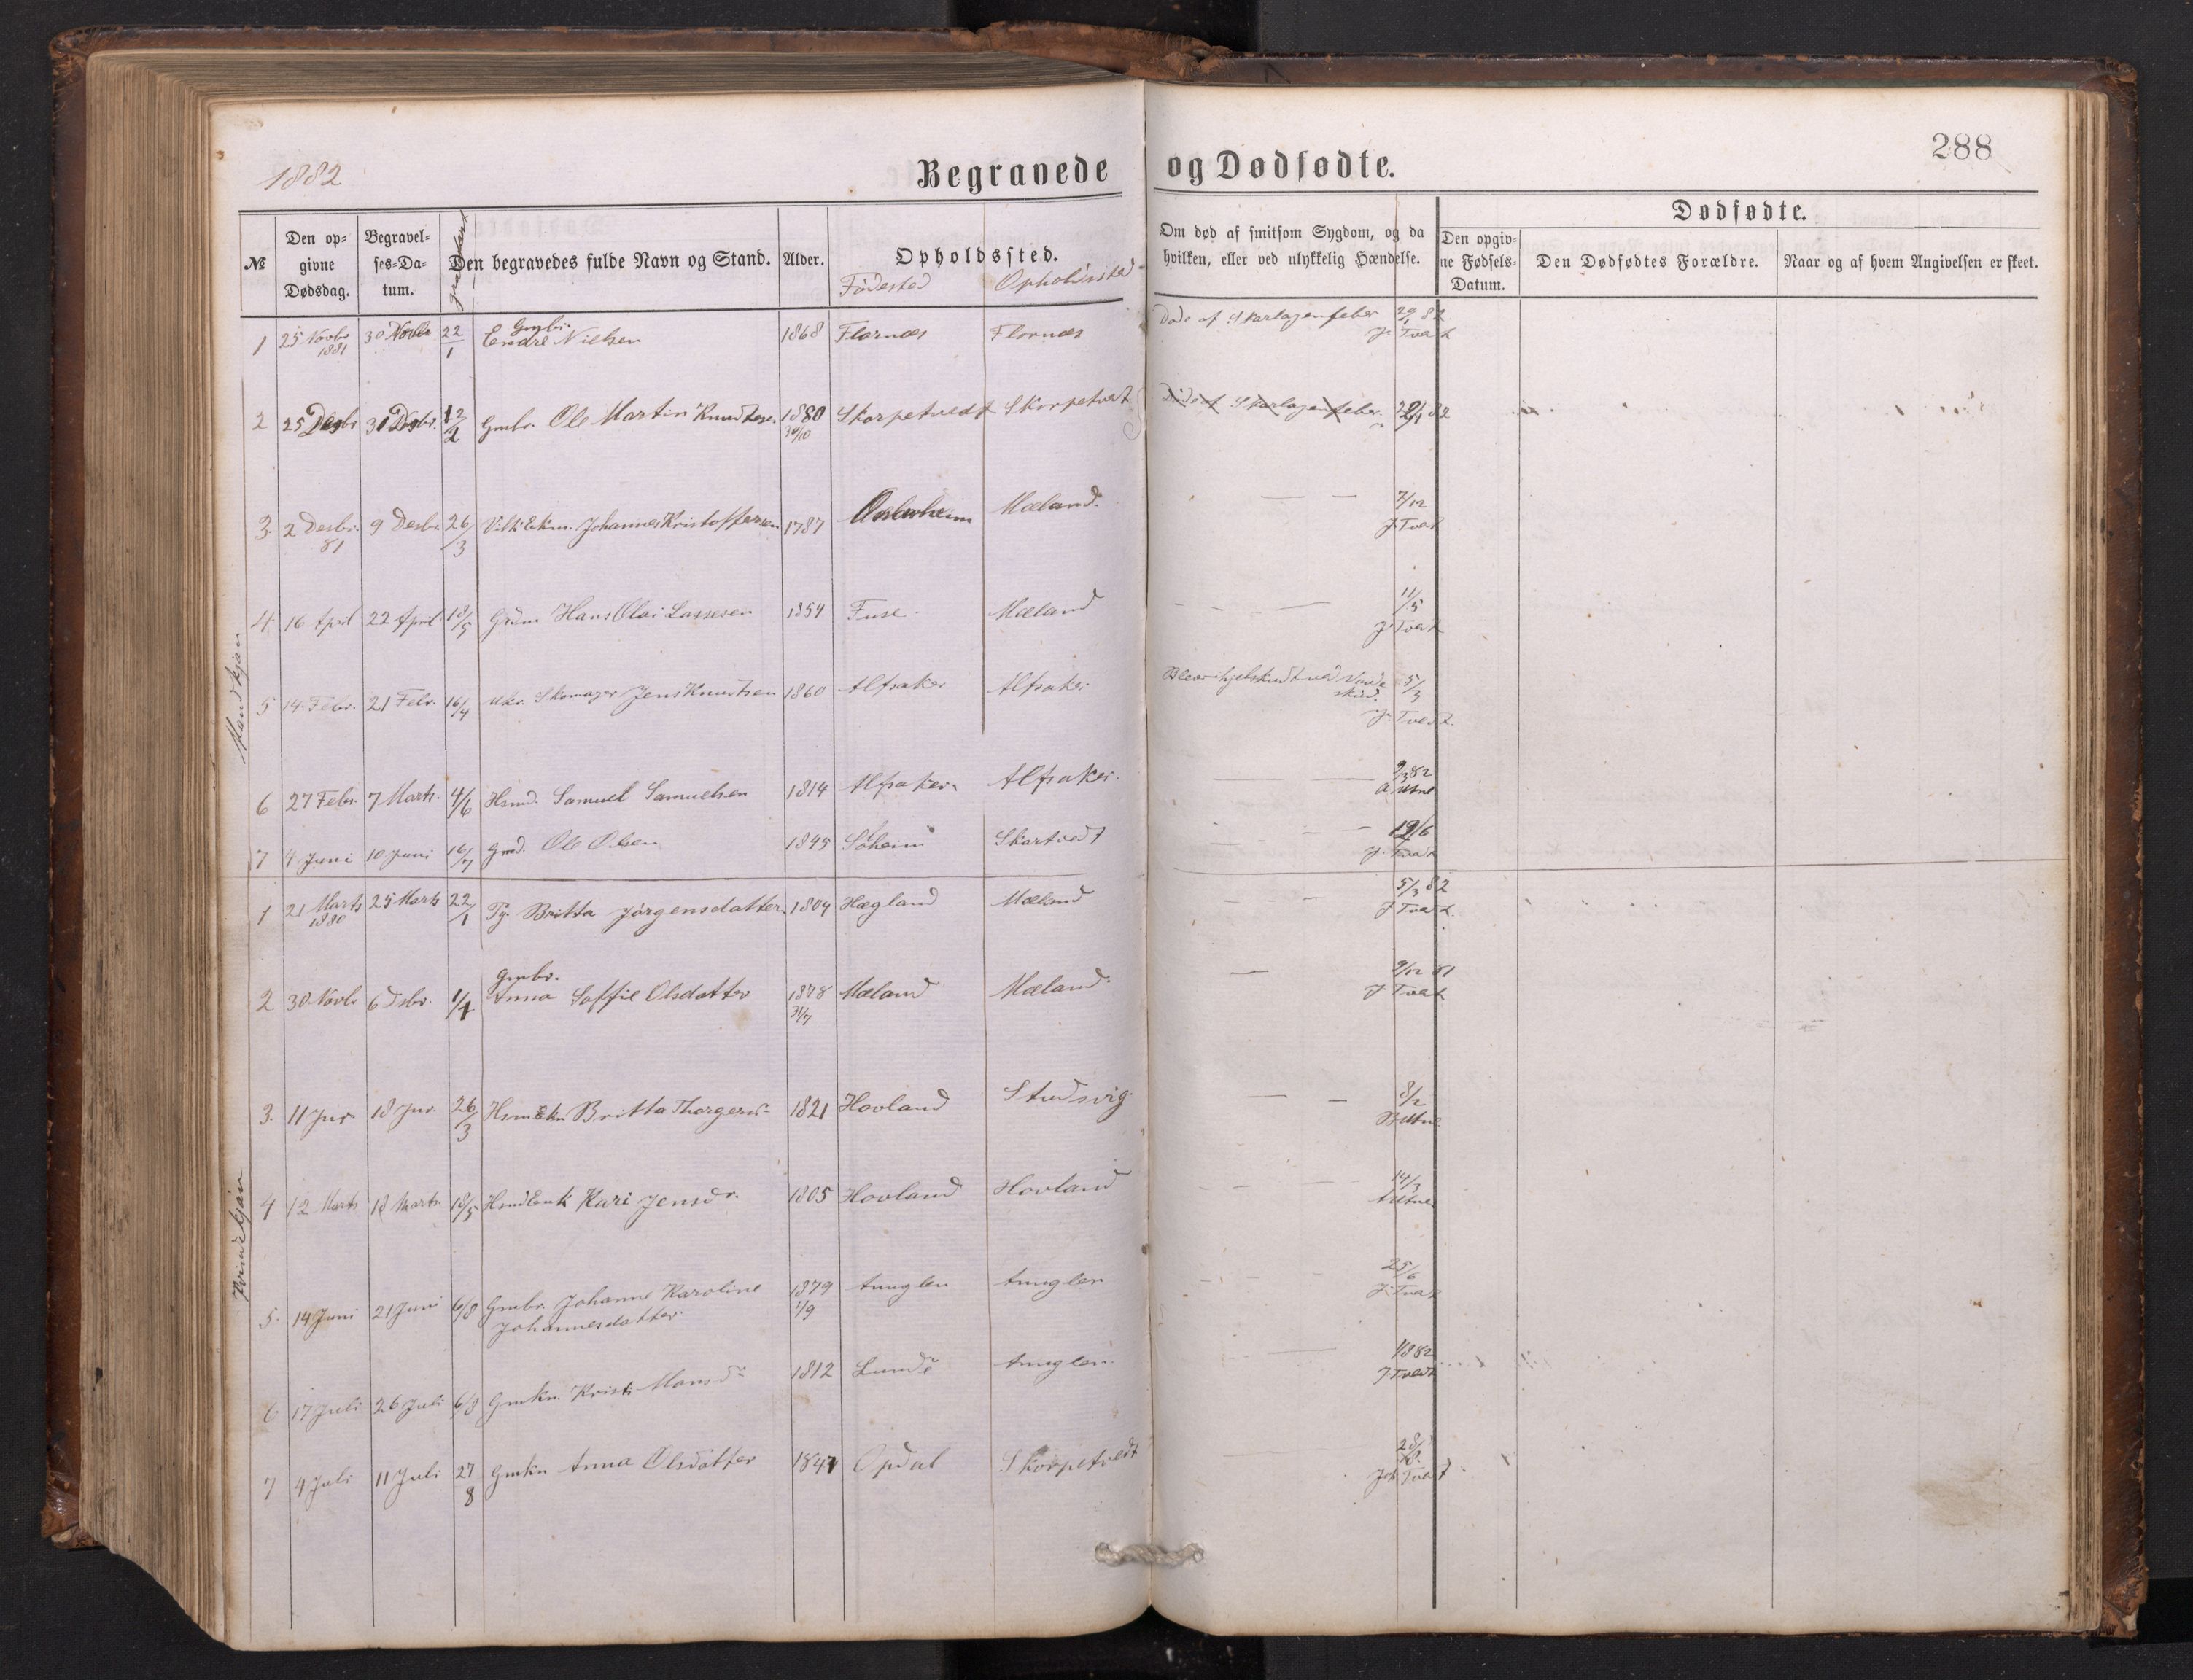 1882
Begravede og Dødfødte.
288
№ Den op= givne Dødsdag. Begravel= ses=Da= tum. Den begravedes fulde Navn og Stand. Alder. Opholdssted. Om død af smitsom Sygdom, og da hvilken, eller ved ulykkelig Hændelse.
Dødfødte.
Den opgiv= ne Fødsels= Datum. Den Dødfødtes Forældre. Naar og af hvem Angivelsen er skeet.
Fødested Opholdssted
Mandkjøn
1 25 Novbr 1881 30 Novbr 22/1 Gmbr. Endre Nielsen 1868 Flornæs Flornæs Døde af Skarlagenfeber 29/1 82 J. Tvedt
2 25 Desbr 31 Desbr. 12/2 Gmbr. Ole Martin Knudtsen 1880 30/10 Skorpetvedt Skorpetvedt Døde af Skarlagenfeber. 82
3. 2 Desbr. 81 9 Desbr 26/3 Johannes Kristoffersen 1787 Mæland. 7/12 J. Tvedt
4. 16 April 22 April 18/5 Hans Olai Lassesen 1854 Fuse Mæland 11/5 J. Tvedt
5 14. Febr. 21 Febr. 16/4 Skomager Jens Knudtsen 1860 Alfsaker Alfsaker 5/3 J. Tvedt.
6 27 Febr. 7 Marts. 4/6 Hsmd. Samuel Samuelsen 1814 Alfsaker. Alfsaker. 9/3 82 A Utne
7 4 Juni 10 Juni 16/7 Gmd. Ole Olsen 1845 Søheim Skartvedt 19/6 J. Tvedt
Kvindekjøn
1 21 Marts 1880 25 Marts 22/1 Britta Jørgensdatter 1804 Hægland Mæland 5/3 82 J Tvedt.
2 30 Novbr 6 Dsbr. 1/4 Gmbr. Anna Soffie Olsdatter 1878 31/7 Mæland Mæland. 9/12 81 J Tvedt
3. 11 Jnr 18 Jnr. 26/3 Britta Thorgers 1821 Hovland Studsvig 8/2 B Utne
4 12 Marts 18 Marts. 18/5 Kari Jensdr. 1805 Hovland Hovland 14/3 A Utne.
5. 14 Juni 21 Juni 6/8 Gmbr. Johanne Karoline 1879 1/9 Aunglen Aunglen 25/6 J. Tvedt
Johannesdatter
6 17 Juli 26 Juli 6/8 Gmkn. Kristi Monsdr 1812 Lunde Aunglen. 1/8 82 J. Tvedt
7 4 Juli 11 Juli 27/8 Gmkn Anna Olsdatter 1847 Opdal Skorpetvedt 28/ Joh Tvedt